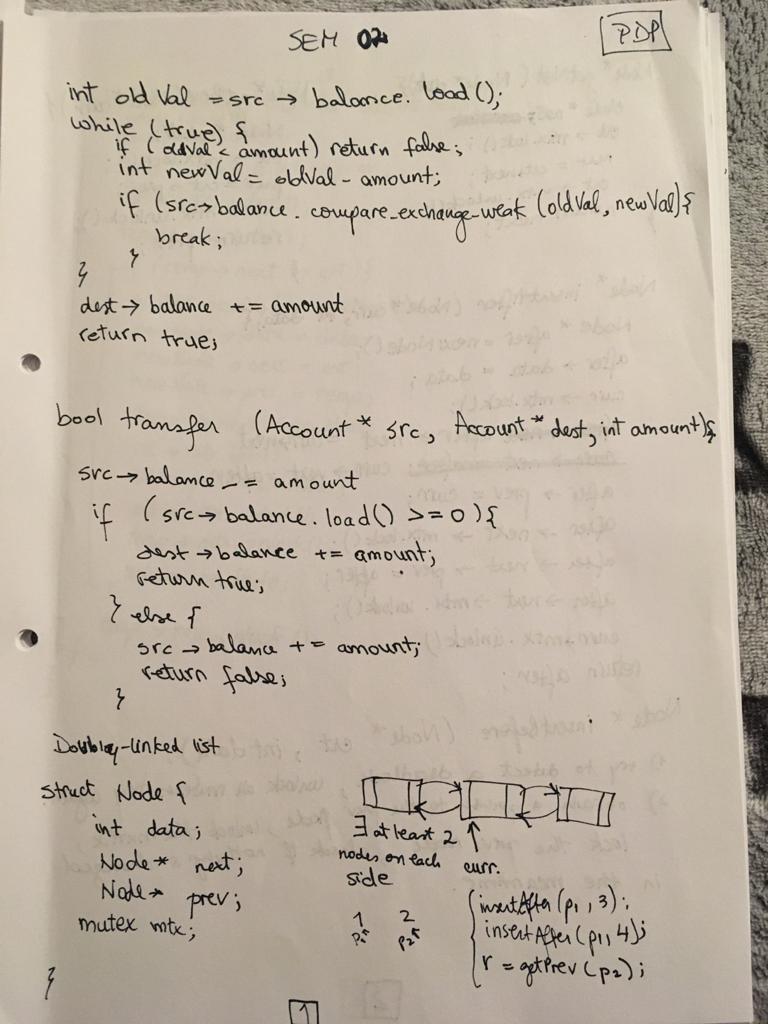 SEM 02
PDP
int oldVal = src → balance. load();
while (true) {
if (oldVal < amount) return false;
int newVal = oldVal - amount;
if (src→balance. compare_exchange_weak (oldVal, newVal){
break;
}
}
dest → balance += amount
return true;
bool transfer (Account * src, Account * dest, int amount){
src → balance -= amount
if (src → balance. load() >= 0) {
dest → balance += amount;
return true;
} else {
src → balance += amount;
return false;
}
Doubley-linked list
struct Node {
int data;
Node* next;
Node* prev;
mutex mtx;
}
∃ at least 2
nodes on each
side
↑
curr.
1 2
p1 p2
insertAfter(p1, 3);
insertAfter(p1, 4);
r = getPrev(p2);
1